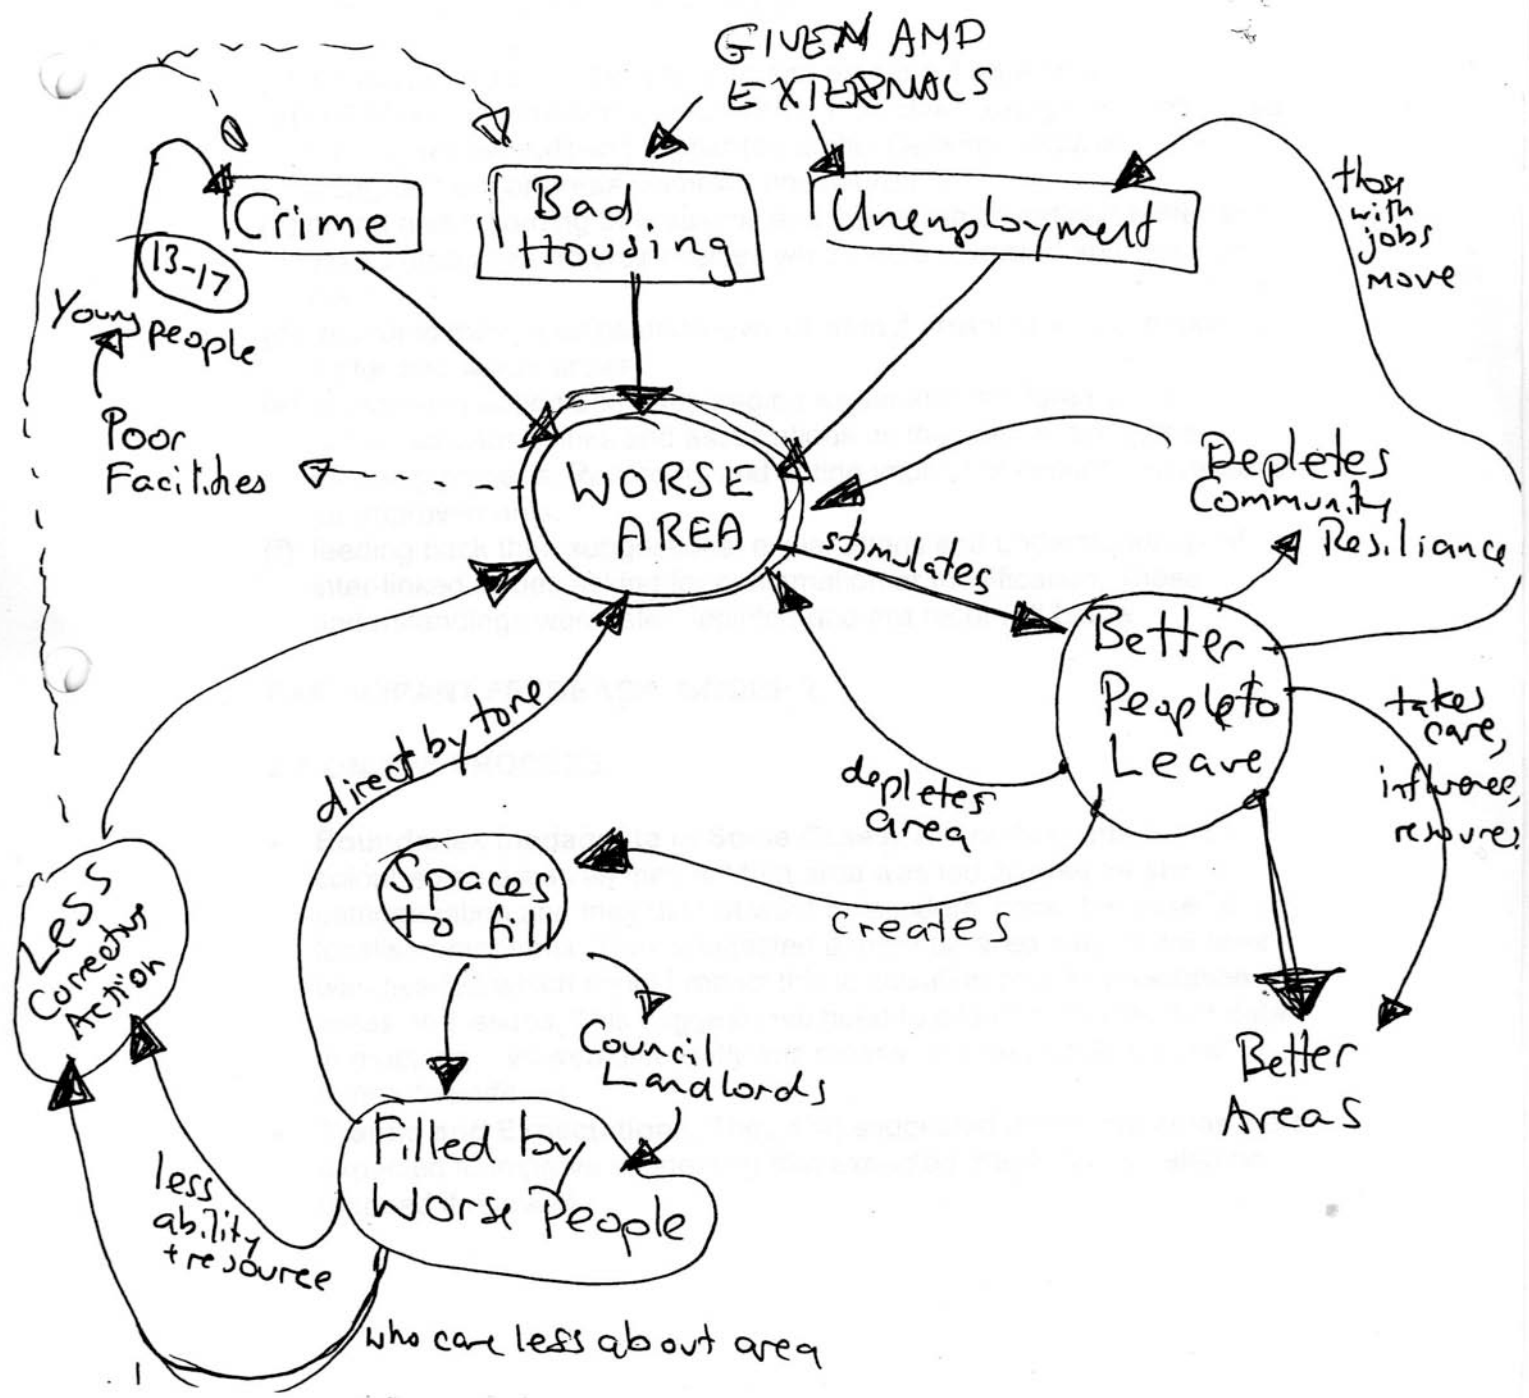 GIVEN AND
EXTERNALS
Crime
Bad
Housing
Unemployment
those
with
jobs
move
13-17
Young people
Poor
Facilities
WORSE
AREA
Depletes
Community
Resiliance
stimulates
Better
People to
Leave
takes
care,
influence,
resources
direct by tone
depletes
area
Spaces
to fill
creates
Less
Corrective
Action
Council
Landlords
Better
Areas
Filled by
Worse People
less
ability
+ resource
who care less about area